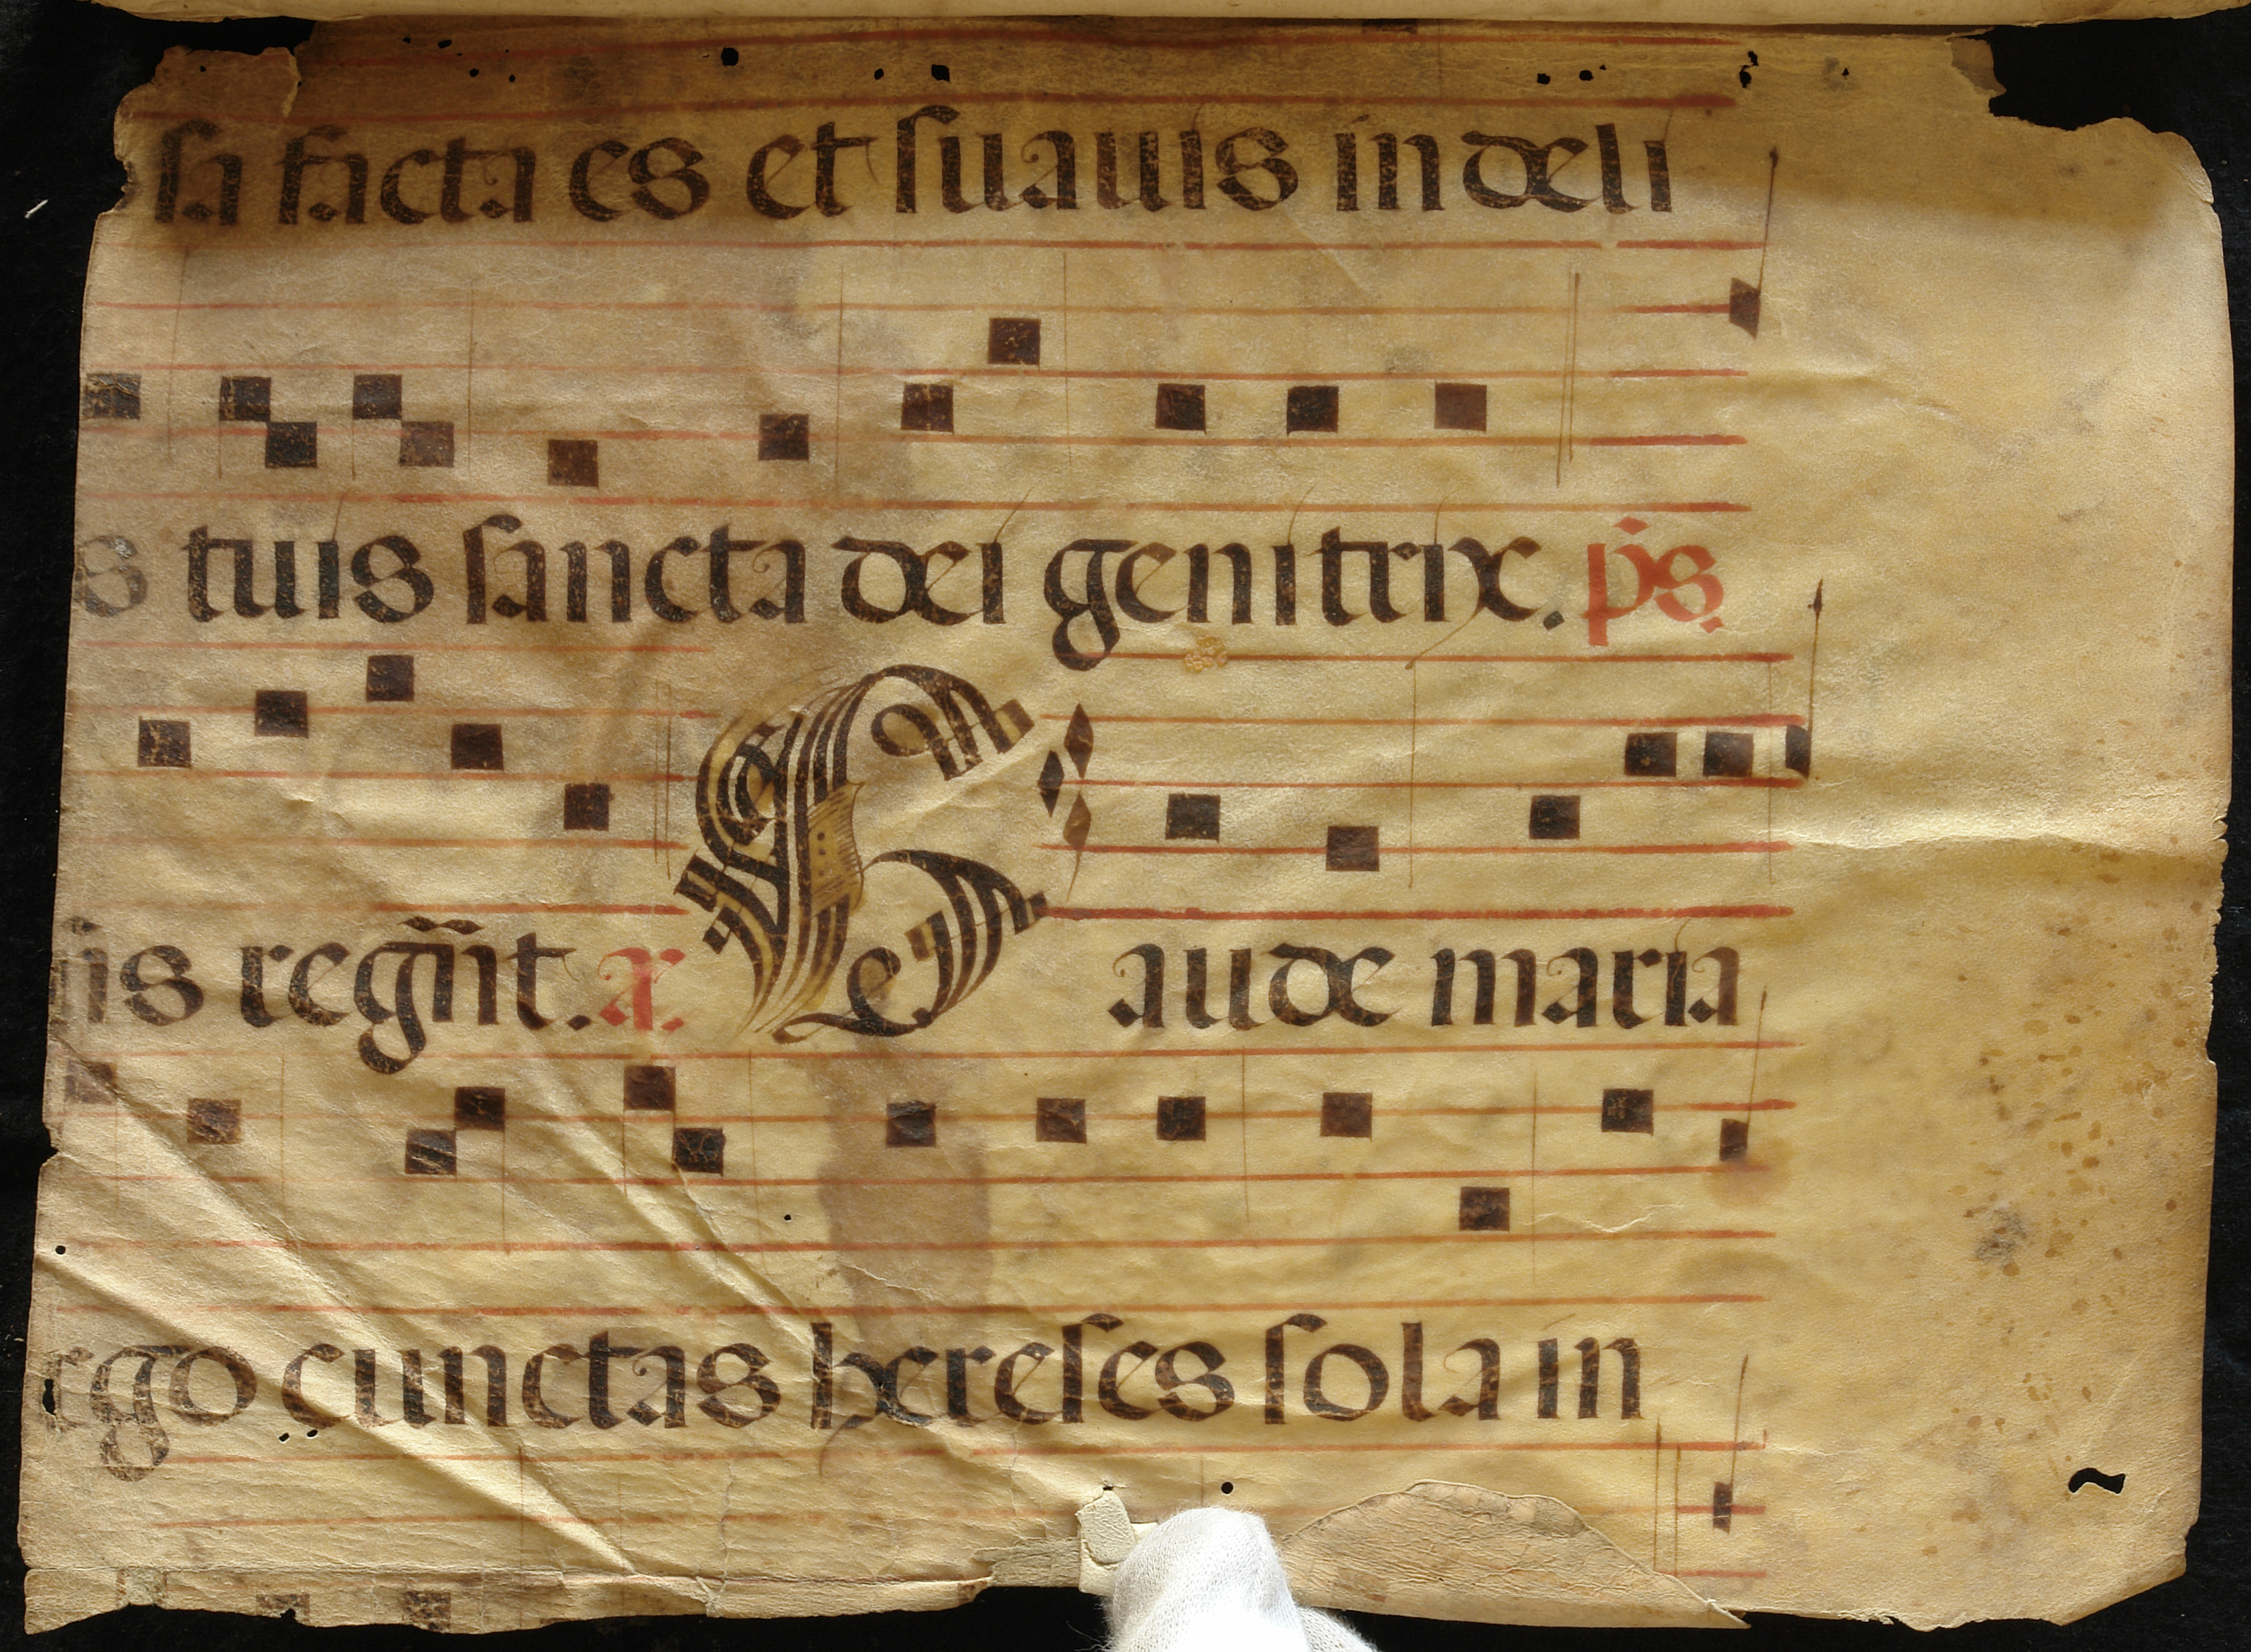 sa facta es et suauis in deli
s tuis sancta dei genitrix. p̄s.
iis regn̄t. a. G aude maria
rgo cunctas hereses sola in